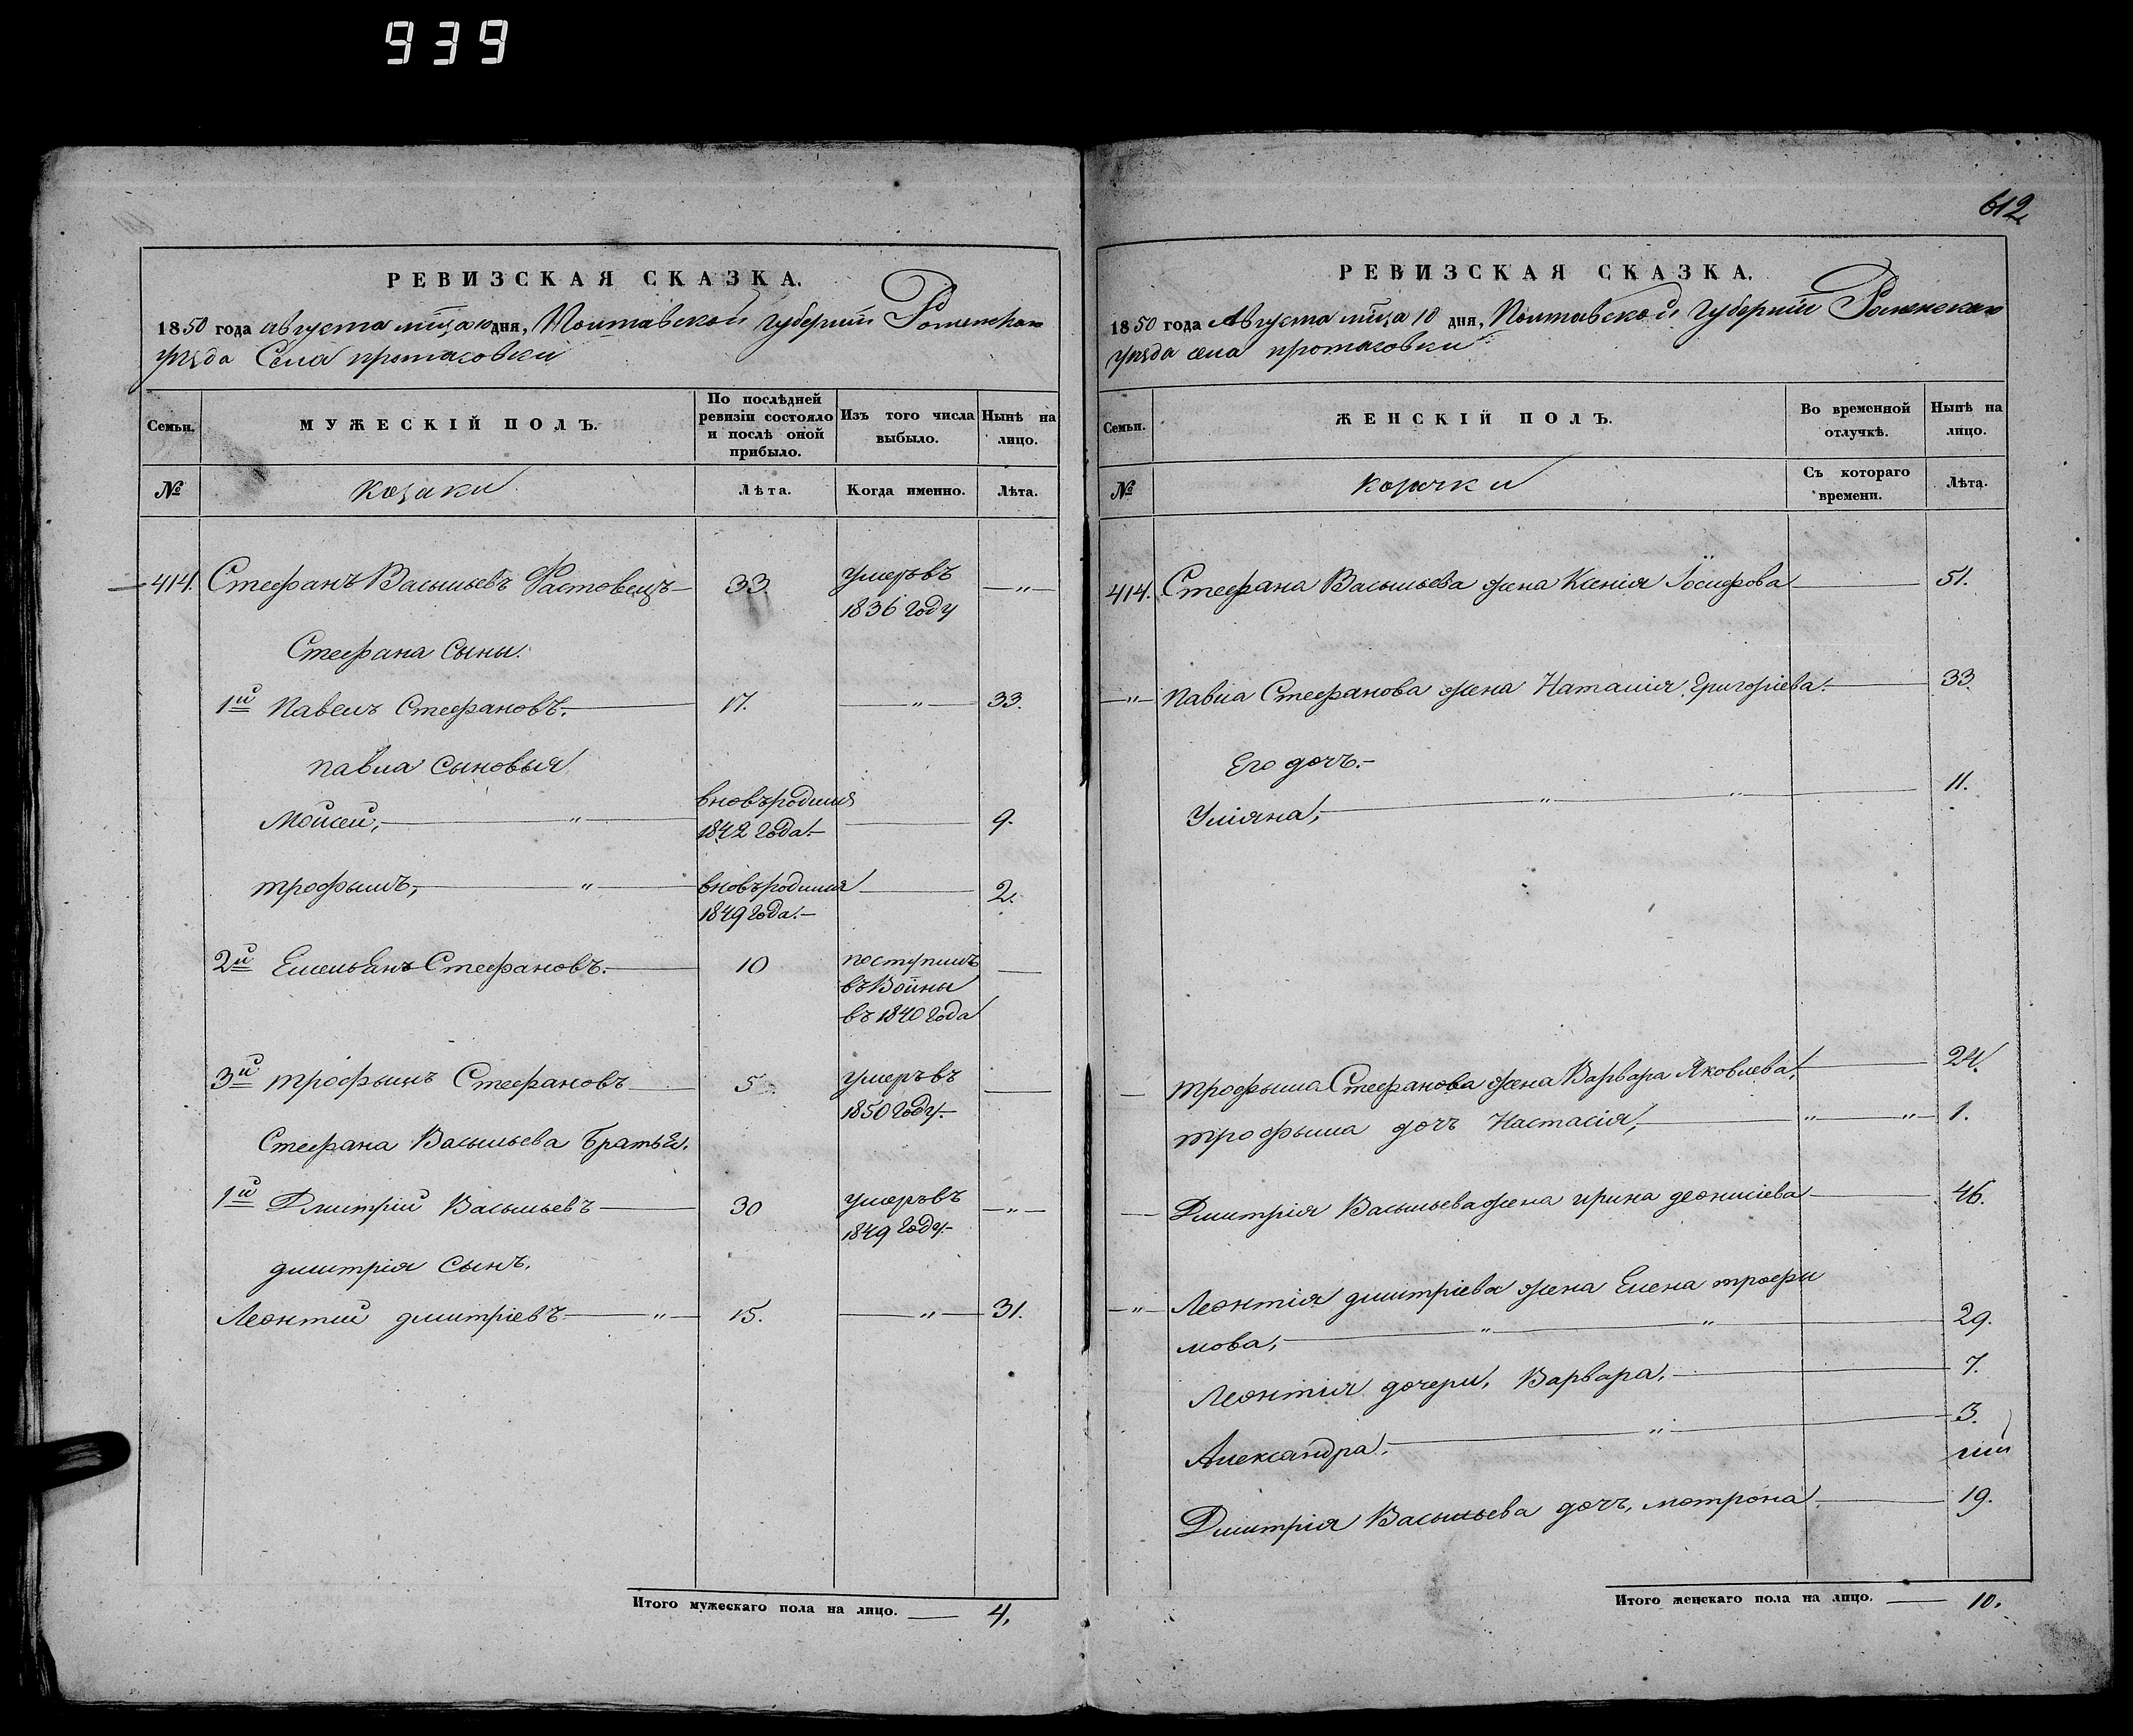 939
612
РЕВИЗСКАЯ СКАЗКА.
1850 года августа мца 10 дня, Полтавской губернии Роменскаго
уезда Села протасовки
Семьи.
МУЖЕСКІЙ ПОЛЪ.
По послѣдней ревизіи состояло и послѣ оной прибыло.
Изъ того числа выбыло.
Нынѣ на лицо.
№
козаки
Лѣта.
Когда именно.
Лѣта.
414. Стефанъ Васыльевъ Фастовецъ — 33. умеръ въ 1836 году — " —
Стефана сыны.
1й Павелъ Стефановъ. — 17. — " — 33.
павла сыновья
Мойсей, — " — вновь родился 1842 года. — 9.
трофымъ, — " — вновь родился 1849 года. — 2.
2й Емельянъ Стефановъ. — 10 поступилъ въ Воины въ 1840 года —
3й трофымъ Стефановъ — 5. умеръ въ 1850 году. —
Стефана Васыльева братья.
1й Дмитрій Васыльевъ — 30 умеръ въ 1849 году. — " —
дмитрія сынъ.
Леонтий дмитріевъ — " — 15. — " — 31.
Итого мужескаго пола на лицо. — 4.
РЕВИЗСКАЯ СКАЗКА.
1850 года Августа мца 10 дня, Полтавской Губерніи Роменскаго
уезда села протасовки
Семьи.
ЖЕНСКІЙ ПОЛЪ.
Во временной отлучкѣ.
Нынѣ на лицо.
№
козачки
Съ котораго времени.
Лѣта.
414. Стефана Васыльева жена Ксенія Іосифова — 51.
— " — павла Стефанова жена Наталія Григоріева. — 33.
Его дочь. —
Уліяна, — " — " — 11.
— трофыма Стефанова жена Варвара Яковлева, — 24.
трофыма дочь Настасія, — " — " — 1.
— Дмитрія Васыльева жена ирина деонисіева — 46.
— " — Леонтія дмитріева жена Елена трофи
мова, — " — " — 29.
Леонтія дочери, Варвара, — 7.
Александра, — " — 3.
Дмитрія Васыльева дочь, мотрона — 19.
Итого женскаго пола на лицо. — 10.